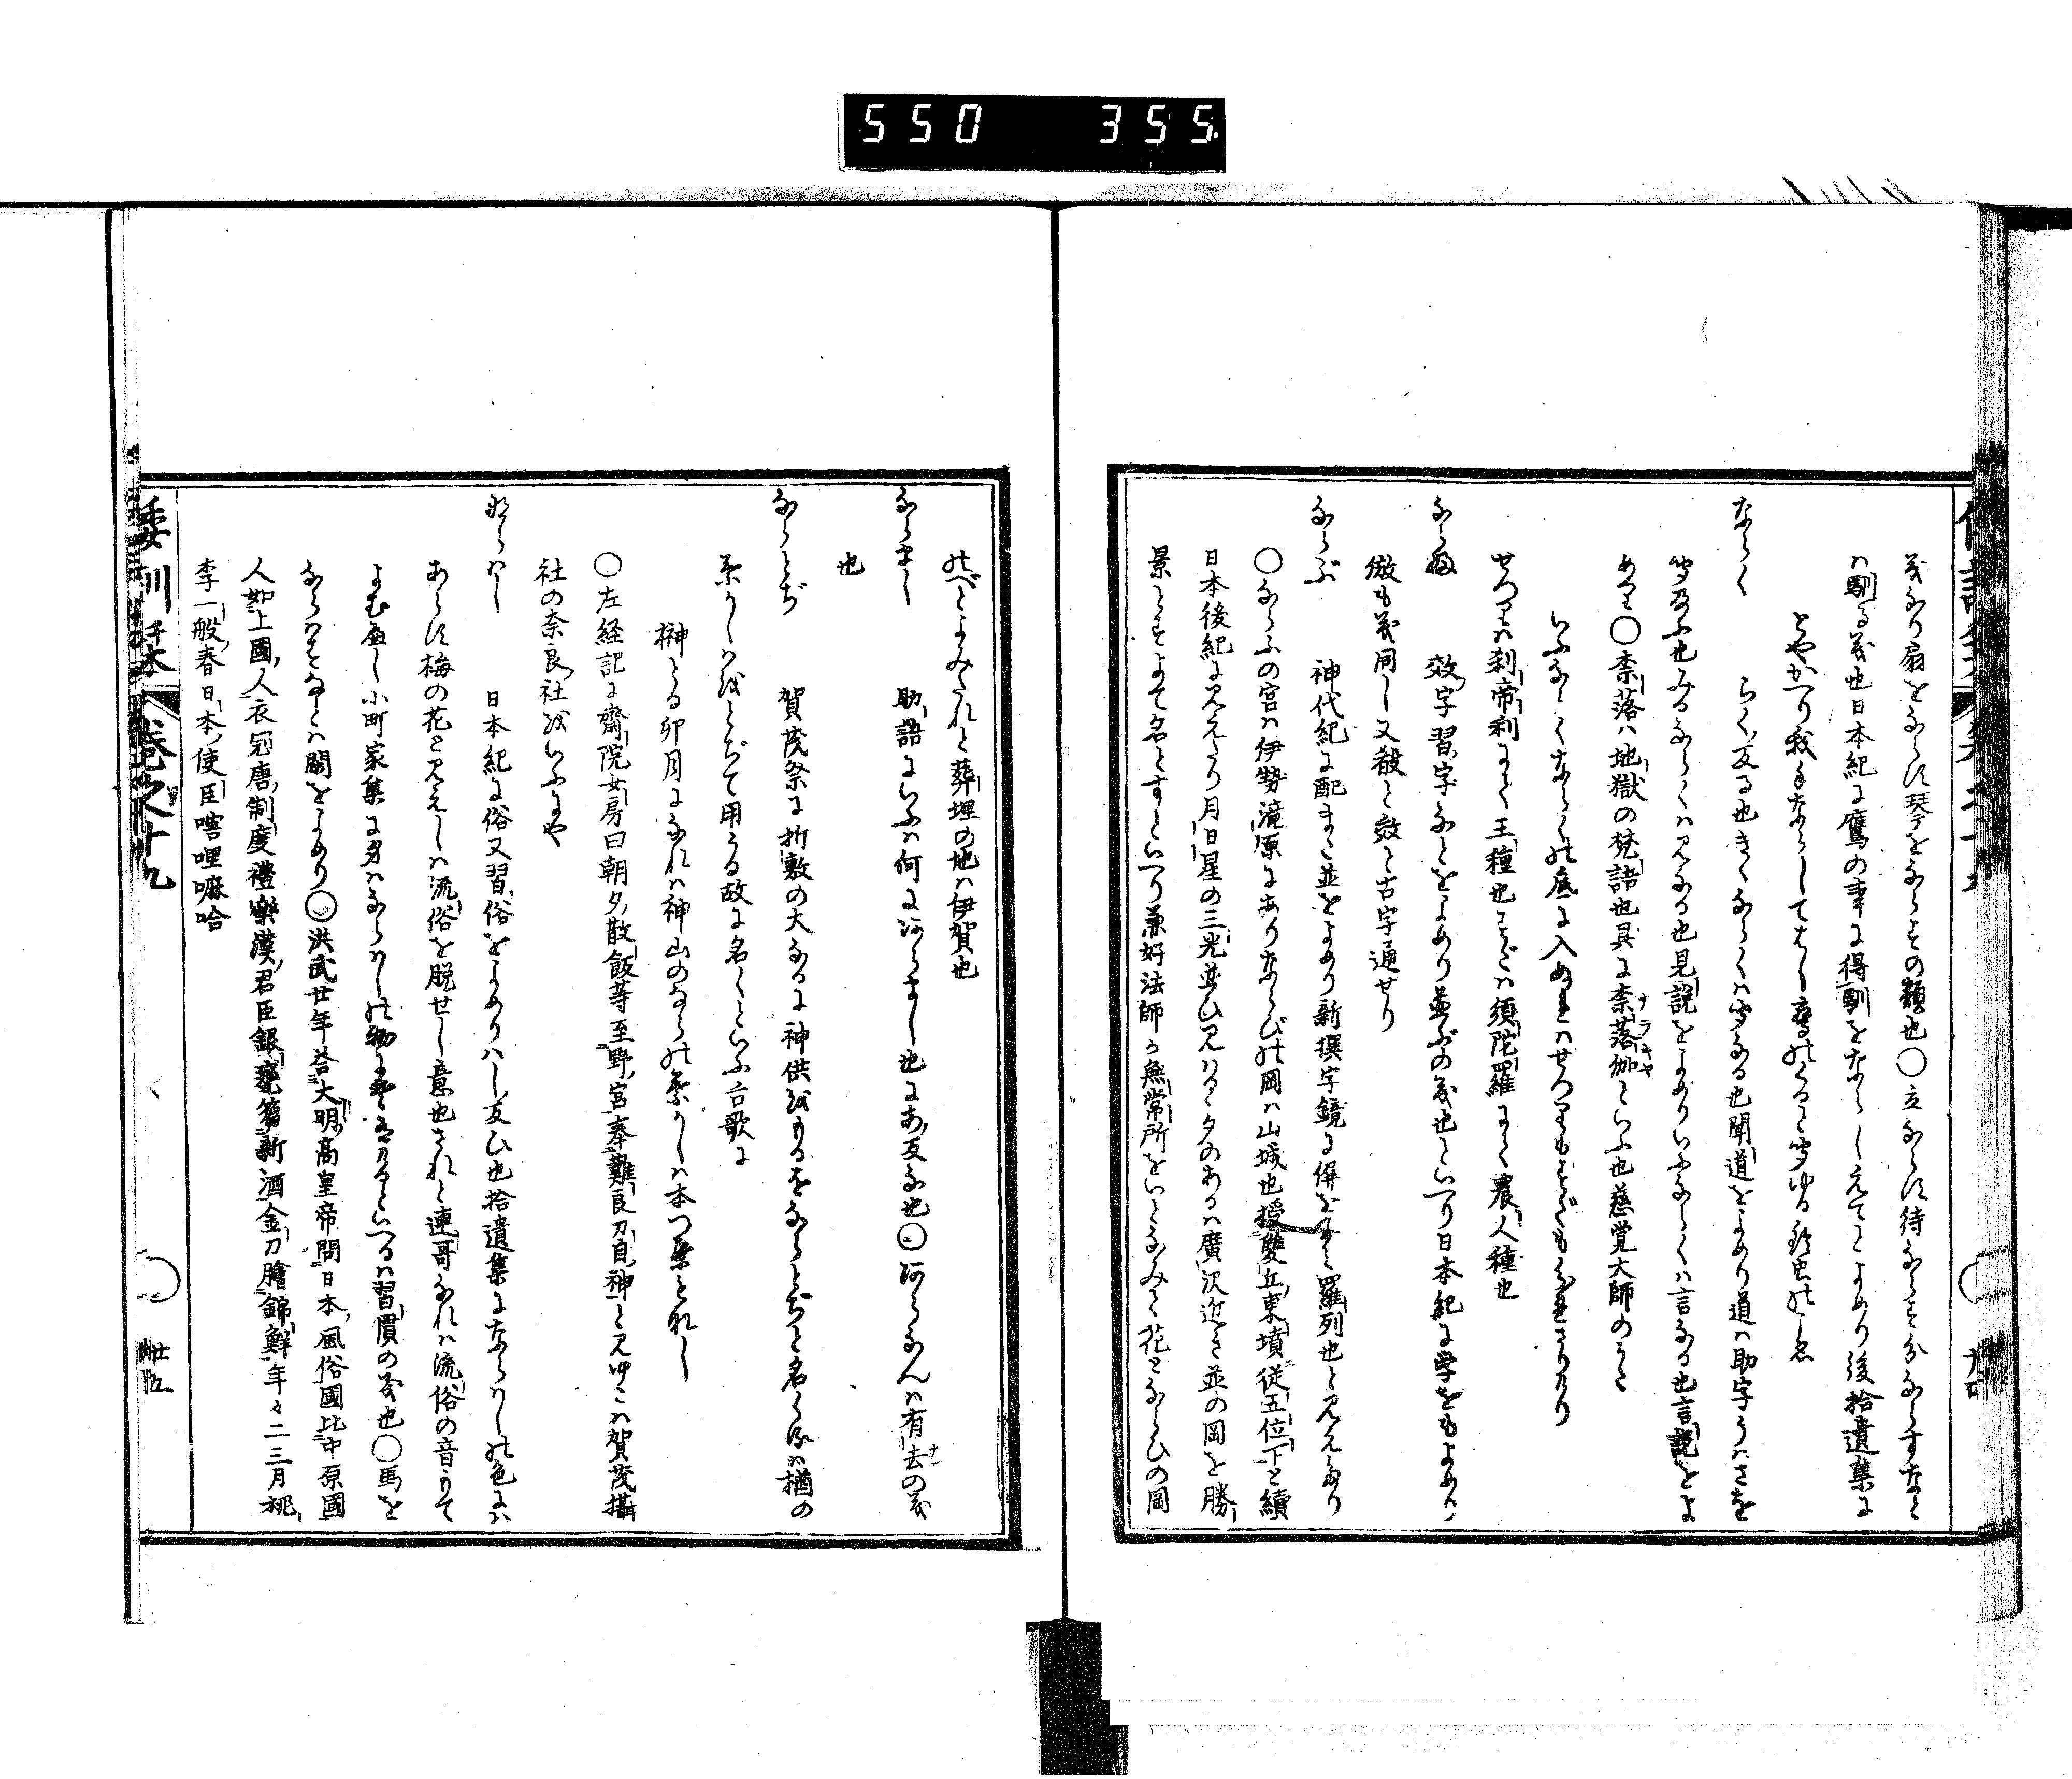 550 355
義なり扇をならす琴をならすの類也〇立ならす待ならす分ならすなと
ハ馴る義也日本紀に鷹の事に得馴をならしえてとよめり後拾遺集に
とやかへり我手ならしてはし鷹のくると聞ゆる鈴虫の
ならく らく反る也きくならくハ聞なる也聞道をよめり道ハ助字
也みるならくハ見なる也見説をよめりいふならくハ言なる也言説をよ
めり〇奈落ハ地獄の梵語也具に奈落伽といふ也慈覚大師のうた
いふならくならくの底に入ぬれハせつりもすだもかはらさりけり
せつりハ刹帝利にて王種也すだハ須陀羅にて農人種也
ならふ 效字習字なとをよめり並ぶの義也といへり日本紀に学をもよめり
倣も義同し又殽と效と古字通せり
ならぶ 神代紀に配また並をよめり新撰字鏡に併をよみ羅列也と見えたり
〇ならふの宮ハ伊勢滝原にありならびの岡ハ山城也授雙丘東墳従五位下と續
日本後紀に見えたり月日星の三光並ひ見ハる夕のあるハ廣沢近き並の岡を勝
景とするよて名とすといへり兼好法師か無常所をいとなみて花をならひの岡
のべとよみたれと葬埋の地ハ伊賀也
ならまし 助語にいふハ何にあらまし也にあ反な也〇ならなんハ有去の義
也
ならとぢ 賀茂祭に折敷の大なるに神供をもるをならとぢと名く
葉かしハをとぢて用うる故に名くといふ古歌に
榊とる卯月になれハ神山のならの葉かしハ本つ葉もなし
〇左経記に齋院女房曰朝夕散飯等至野宮奉難良刀自神と見ゆこハ賀茂攝
社の奈良社をいふにや
ならハし 日本紀に俗又習俗をよめりハし反ひ也拾遺集にならハしの色にハ
あらす梅の花と見えしハ流俗を脱せし意也されと連哥なれハ流俗の音にて
よむへし小町家集に身ハならハしの物にそ有けるといへるハ習慣の義也〇馬を
ならハすなとハ閑をよめり〇洪武廿年答大明高皇帝問日本風俗國比中原國
人如上國人衣冠唐制度禮樂漢君臣銀甕蒭新酒金刀膾錦鮮年々二三月桃
李一般春日本使臣嗐哩嘛哈
倭訓栞 卷之十九 廿五